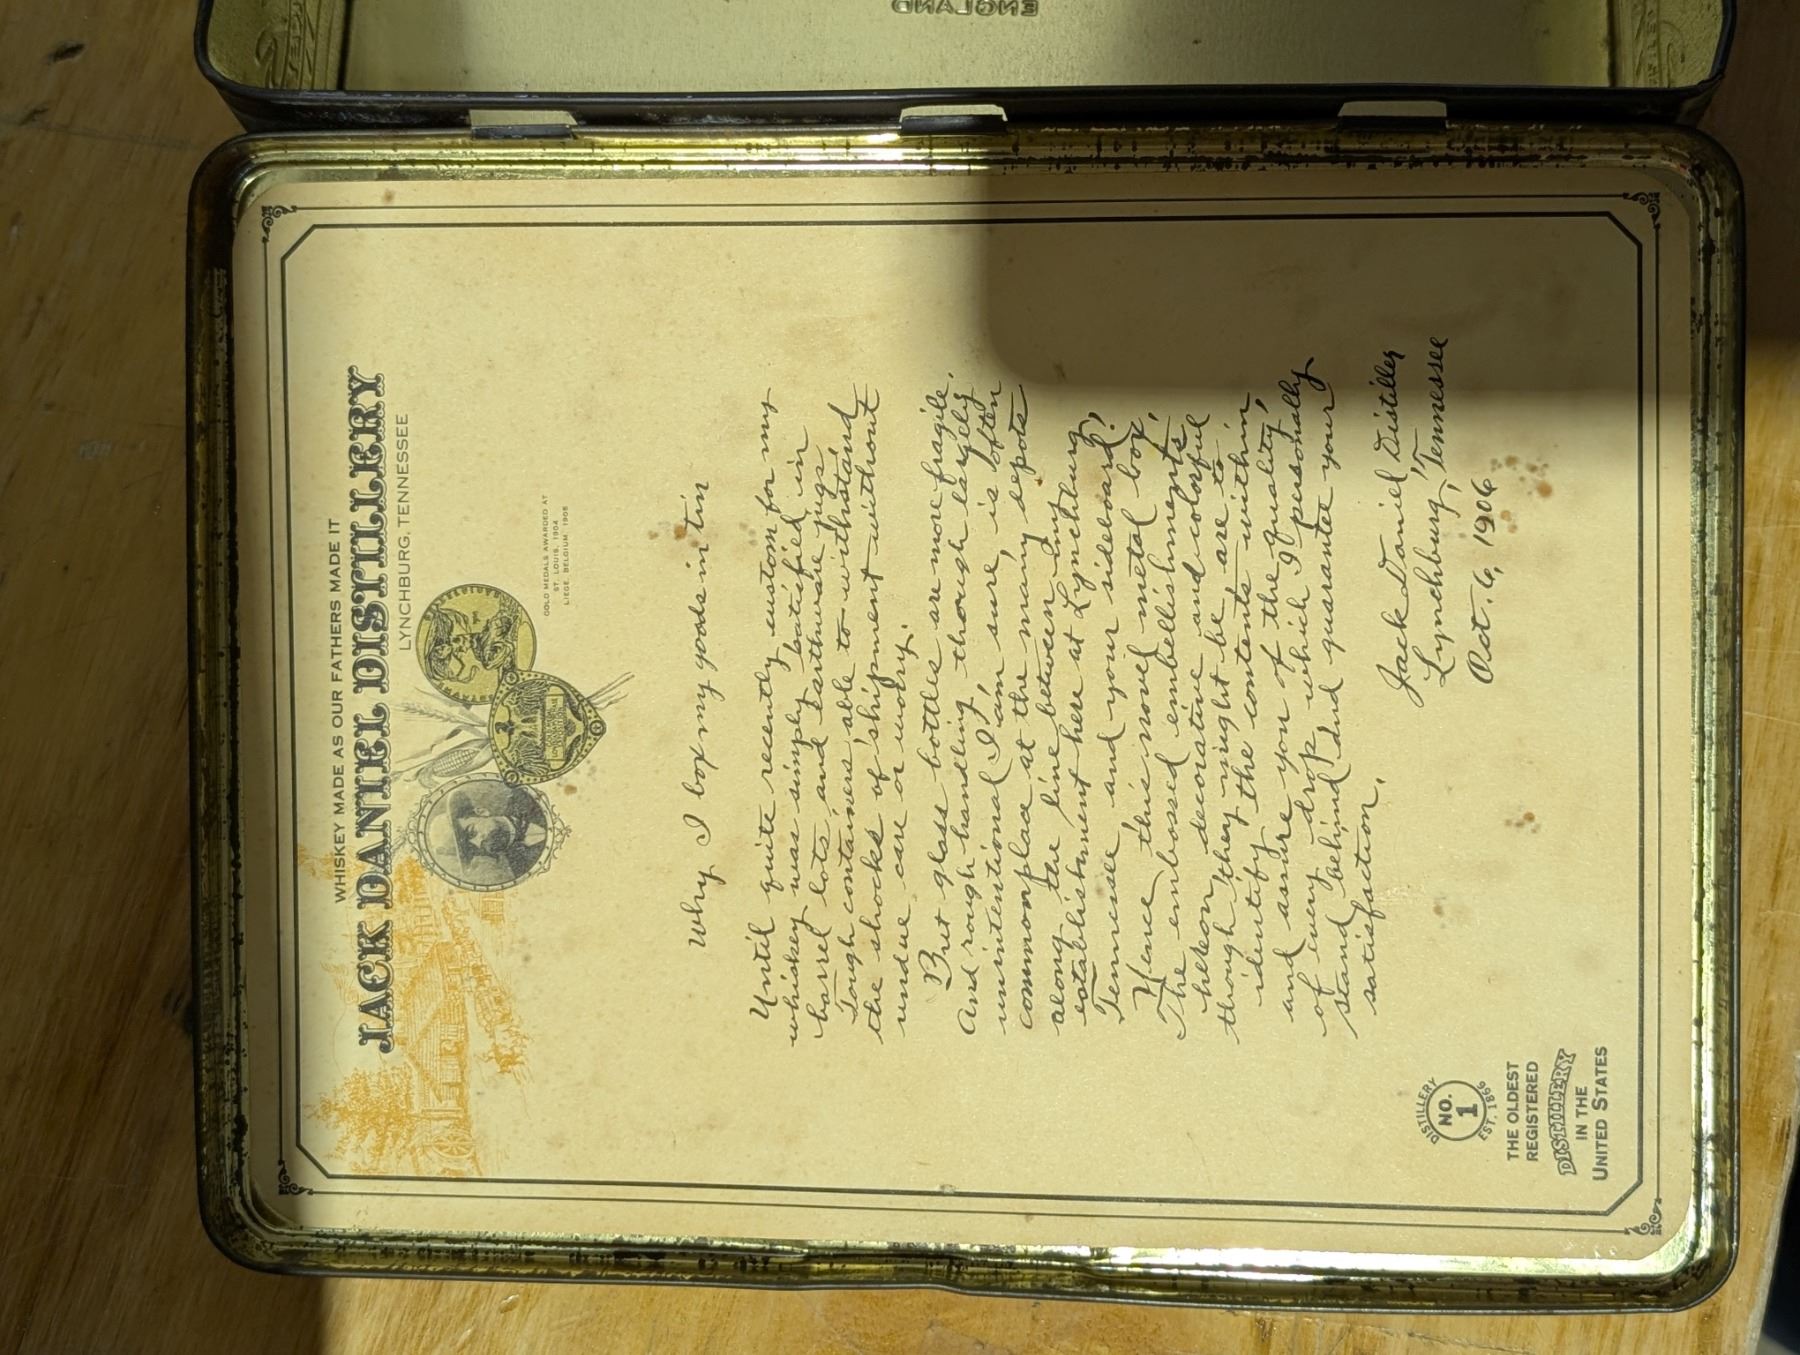 ENGLAND
WHISKEY MADE AS OUR FATHERS MADE IT
JACK DANIEL DISTILLERY
LYNCHBURG, TENNESSEE
GOLD MEDALS AWARDED AT
ST. LOUIS, 1904
LIEGE, BELGIUM, 1905
Why I box my goods in tin
Until quite recently custom for my
whiskey was simply satisfied in
barrel lots, and earthware jugs.
Tough containers, able to withstand
the shocks of shipment without
undue care or worry.
But glass bottles are more fragile.
And rough handling, though largely
unintentional I am sure, is often
commonplace at the many depots
along the line between my
establishment here at Lynchburg,
Tennessee and your sideboard!
Hence this novel metal box.
The embossed embellishments
hereon, decorative and colorful
though they might be are to
identify the contents within,
and assure you of the quality
of every drop which I personally
stand behind and guarantee your
satisfaction.
Jack Daniel Distiller
Lynchburg, Tennessee
Oct. 6, 1906
DISTILLERY
NO.
1
EST. 1866
THE OLDEST
REGISTERED
DISTILLERY
IN THE
UNITED STATES